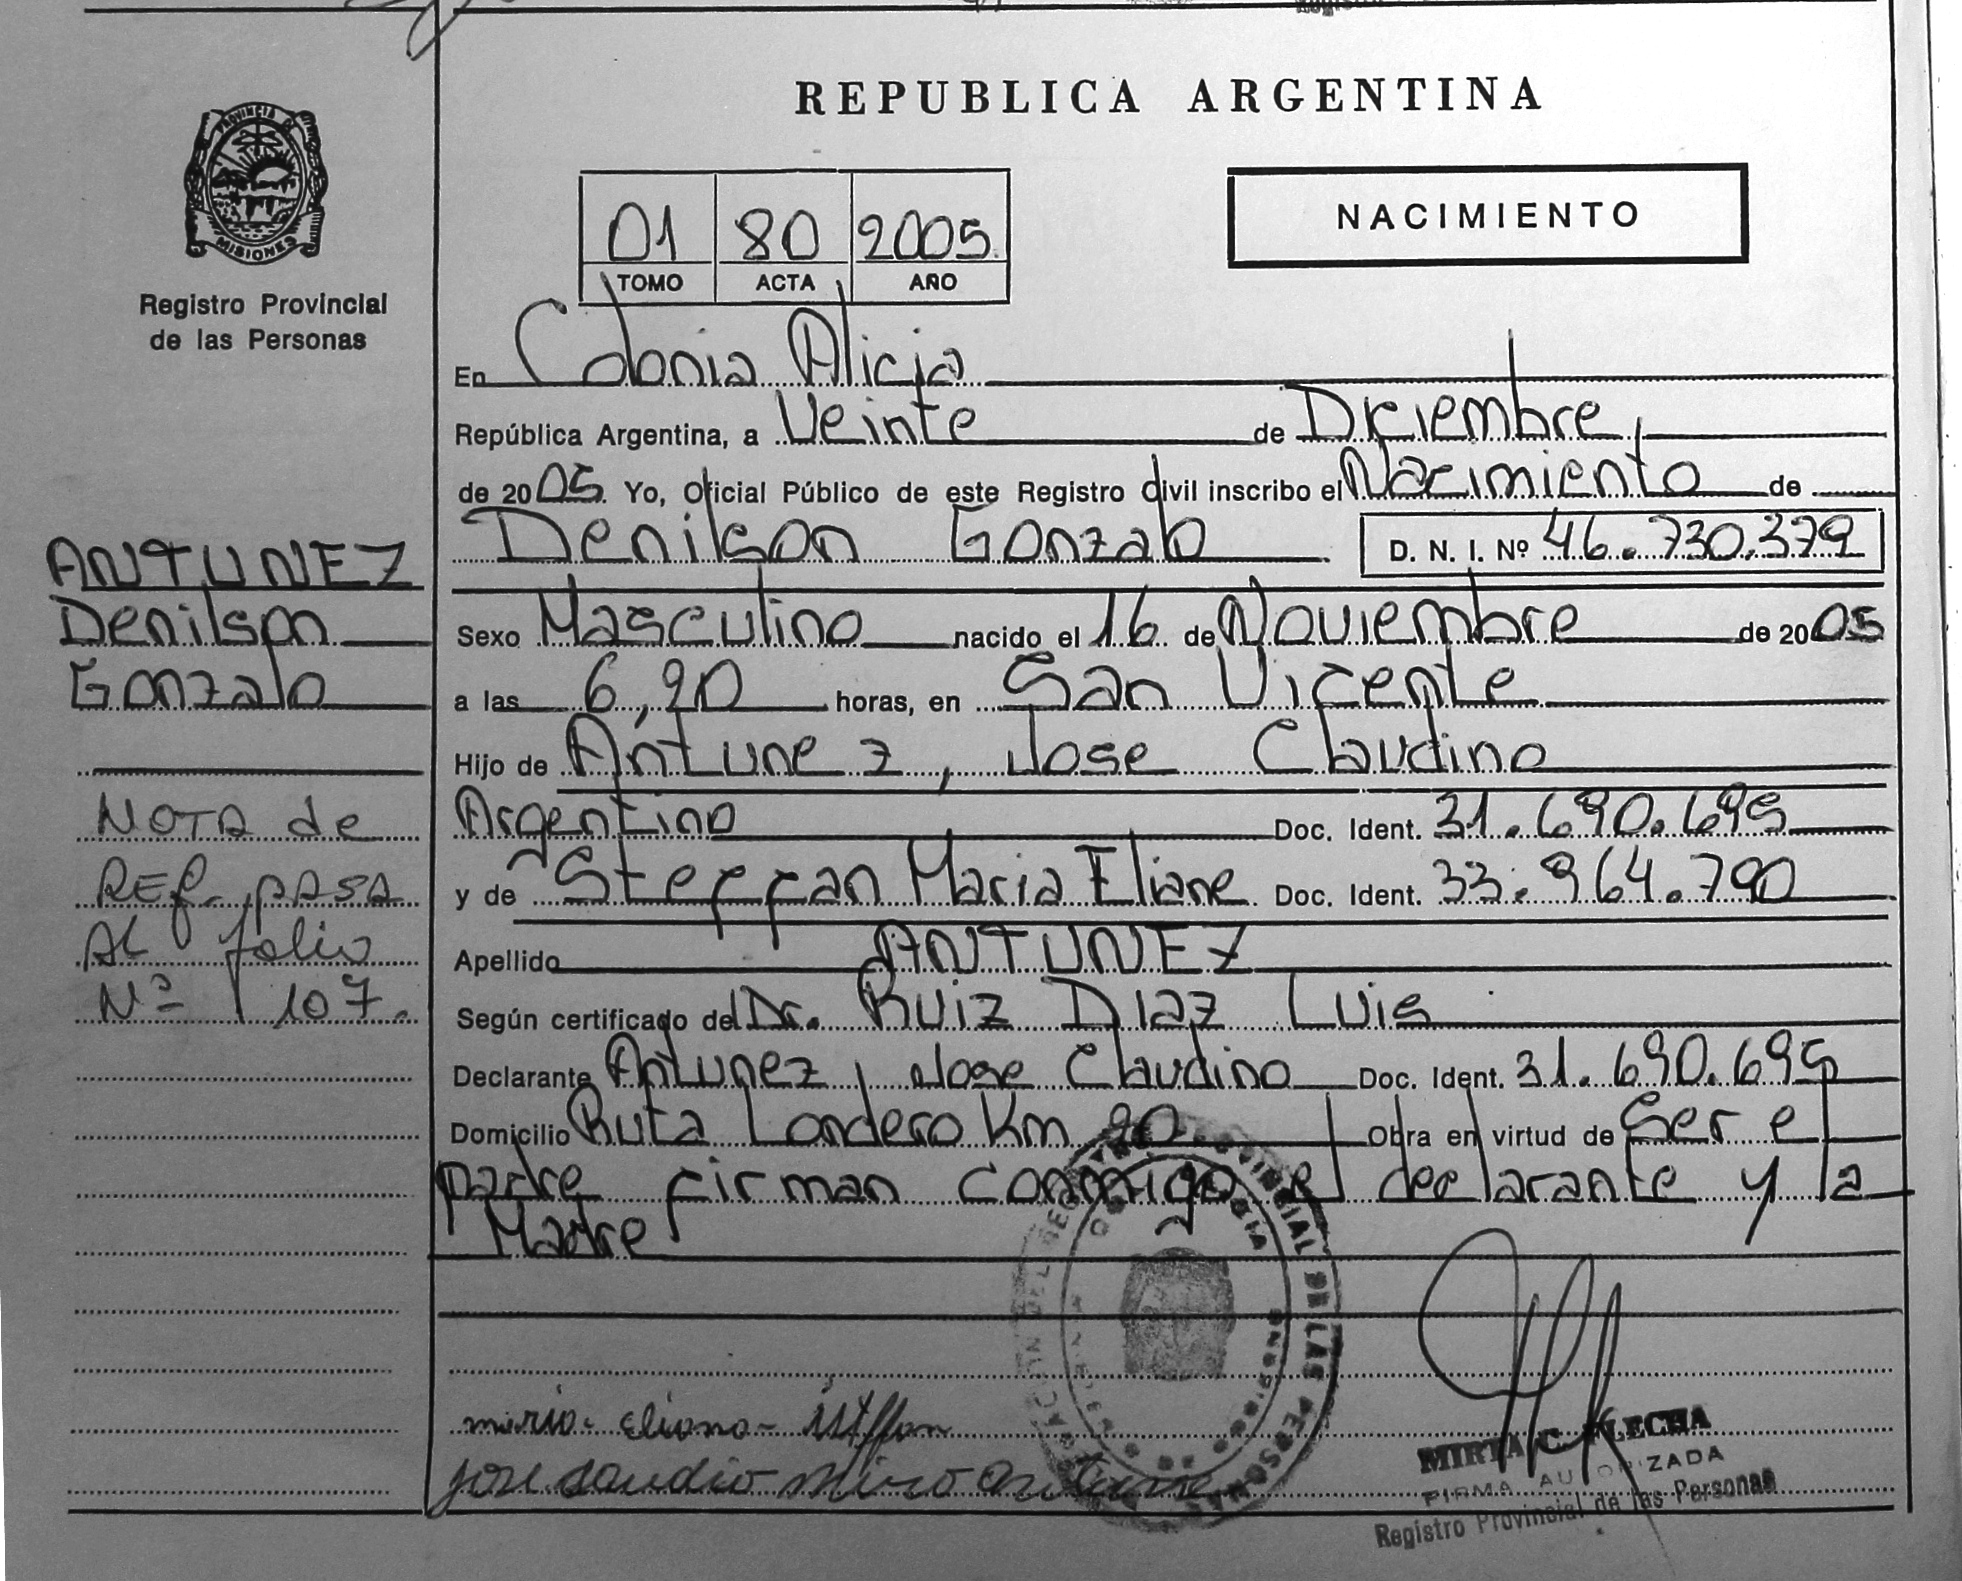 REPUBLICA ARGENTINA
PROVINCIA DE
MISIONES
Registro Provincial
de las Personas
01 80 2005
TOMO ACTA AÑO
NACIMIENTO
En Colonia Alicia
República Argentina, a Veinte de Diciembre,
de 2005. Yo, Oficial Público de este Registro Civil inscribo el Nacimiento de
Denilson Gonzalo D. N. I. Nº 46.730.379
Sexo Masculino nacido el 16 de Noviembre de 2005
a las 6,20 horas, en San Vicente
Hijo de Antunez, Jose Claudino
Argentino Doc. Ident. 31.690.695
y de Steffan Maria Eliane Doc. Ident. 33.964.790
Apellido ANTUNEZ
Según certificado del Dr. Ruiz Diaz Luis
Declarante Antunez, Jose Claudino Doc. Ident. 31.690.695
Domicilio Ruta Londero Km 20 Obra en virtud de Ser el
padre firman conmigo el declarante y la
Madre
ANTUNEZ
Denilson
Gonzalo
NOTA de
REF. PASA
AL folio
Nº 107.
MIRTA C. FLECHA
FIRMA AUTORIZADA
Registro Provincial de las Personas